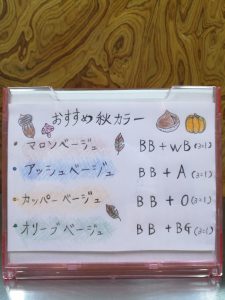 おすすめ秋カラー
・マロンベージュ BB + WB (3:1)
・アッシュベージュ BB + A (3:1)
・カッパーベージュ BB + O (3:1)
・オリーブベージュ BB + BG (3:1)